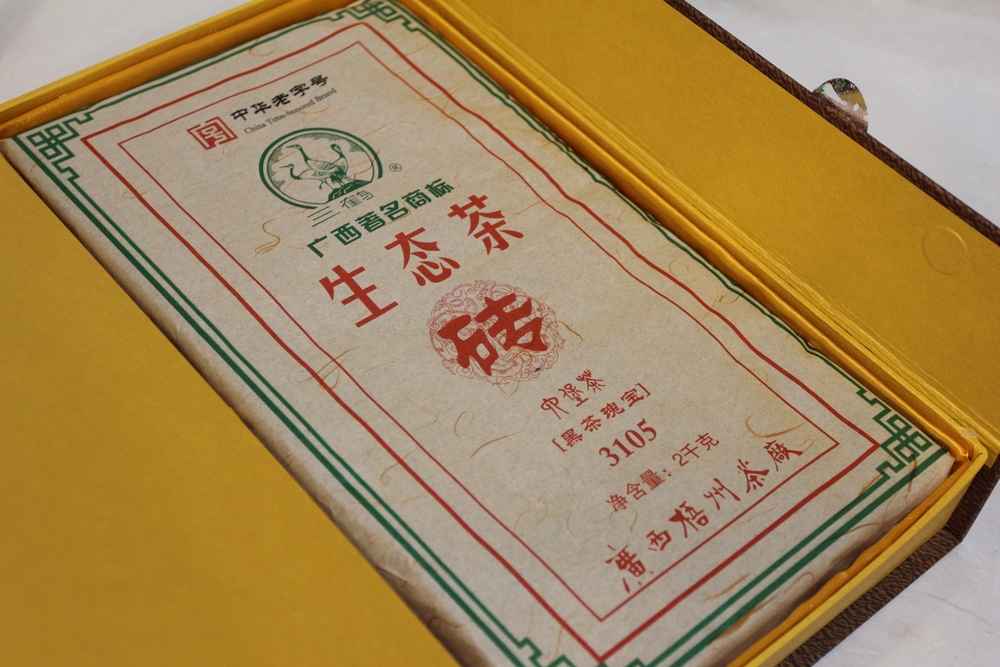 中华老字号
China Time-honored Brand
三鹤
®
广西著名商标
生态茶
砖
六堡茶
[黑茶瑰宝]
3105
净含量：2千克
廣西梧州茶廠